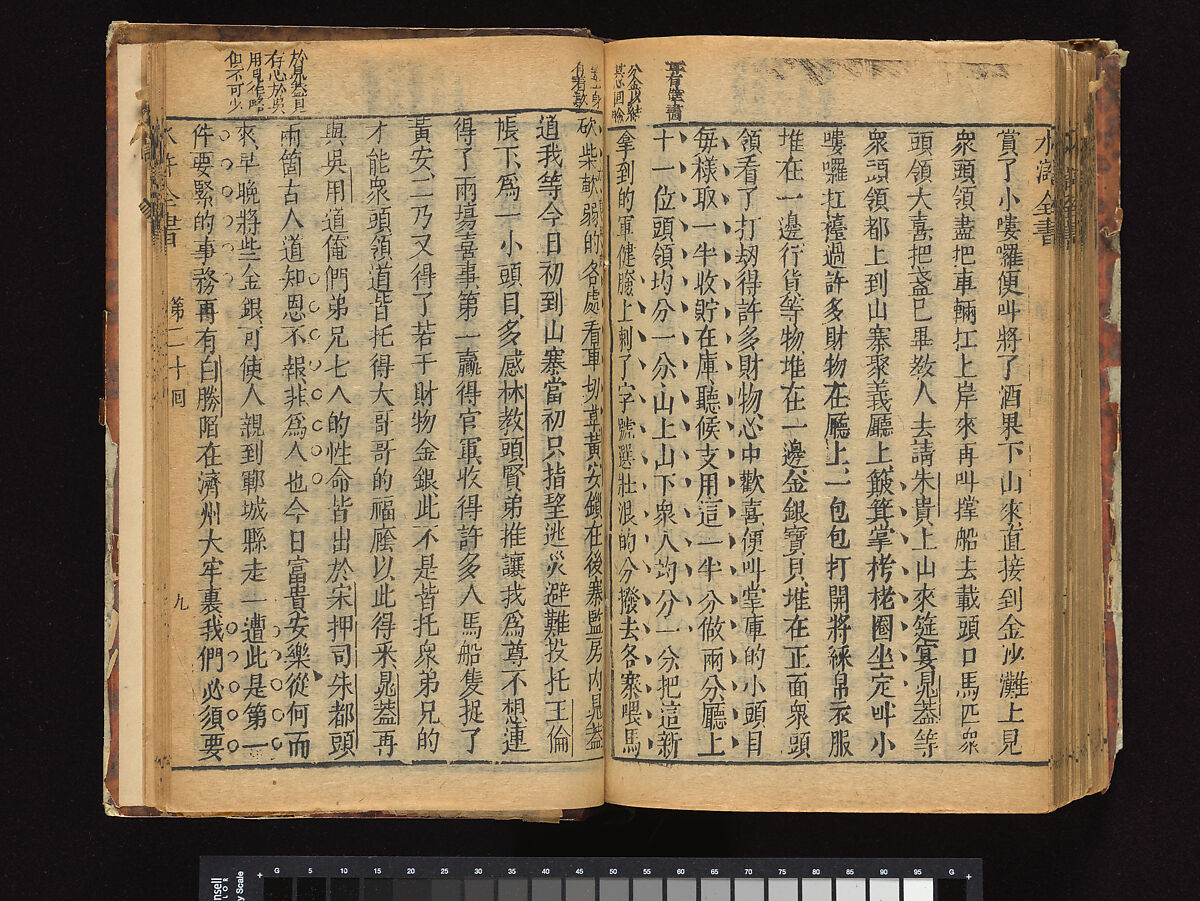 水滸全書
賞了小嘍囉便叫將了酒果下山來直接到金沙灘上見
衆頭領盡把車輛扛上岸來再叫撑船去載頭口馬匹衆
頭領大喜把盞已畢教人去請朱貴上山來筵宴晁蓋等
衆頭領都上到山寨聚義廳上簸箕掌栲栳圈坐定叫小
嘍囉扛擡過許多財物在廳上一包包打開將綵帛衣服
堆在一邊行貨等物堆在一邊金銀寶貝堆在正面衆頭
領看了打刼得許多財物心中歡喜便叫掌庫的小頭目
每樣取一半收貯在庫聽候支用這一半分做兩分廳上
十一位頭領均分一分山上山下衆人均分一分把這新
拿到的軍健臉上刺了字號選壯浪的分撥去各寨喂馬
砍柴軟弱的各處看車切草黃安鎖在後寨監房內晁蓋
道我等今日初到山寨當初只指望逃災避難投托王倫
帳下爲一小頭目多感林教頭賢弟推讓我爲尊不想連
得了兩塲喜事第一贏得官軍收得許多人馬船隻捉了
黃安二乃又得了若干財物金銀此不是皆托衆弟兄的
才能衆頭領道皆托得大哥哥的福廕以此得來晁蓋再
與吳用道俺們弟兄七人的性命皆出於宋押司朱都頭
兩箇古人道知恩不報非爲人也今日富貴安樂從何而
來早晚將些金銀可使人親到鄆城縣走一遭此是第一
件要緊的事務再有白勝陷在濟州大牢裏我們必須要
於晁蓋見
存心於吳
用見作略
但不可少
水滸全書
第二十回
九